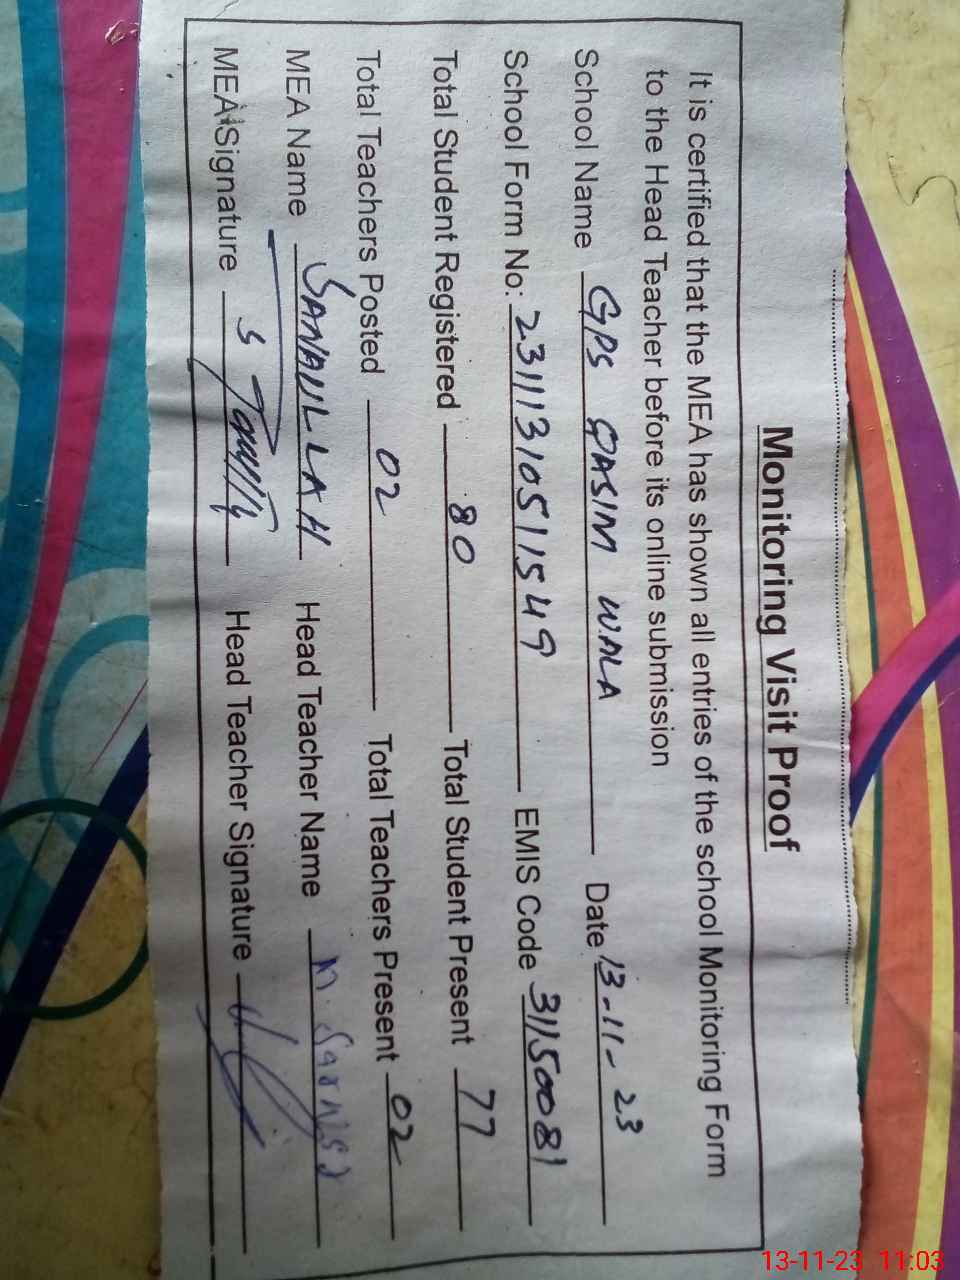 Monitoring Visit Proof
It is certified that the MEA has shown all entries of the school Monitoring Form
to the Head Teacher before its online submission
School Name GPS QASIM WALA Date 13-11-23
School Form No: 23111310511549 EMIS Code 31150081
Total Student Registered 80 Total Student Present 77
Total Teachers Posted 02 Total Teachers Present 02
MEA Name SANAULLAH Head Teacher Name M.
MEA Signature Head Teacher Signature
13-11-23 11:03